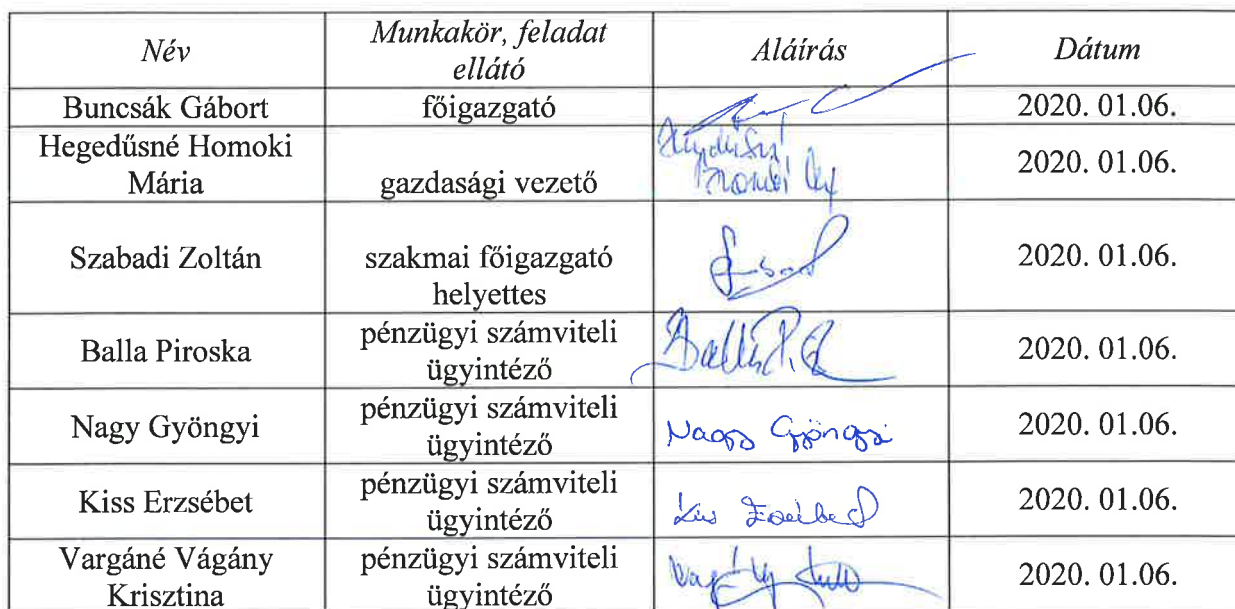 Név Munkakör, feladat ellátó Aláírás Dátum
Buncsák Gábort főigazgató 2020. 01.06.
Hegedűsné Homoki Mária gazdasági vezető 2020. 01.06.
Szabadi Zoltán szakmai főigazgató helyettes 2020. 01.06.
Balla Piroska pénzügyi számviteli ügyintéző Balla P. 2020. 01.06.
Nagy Gyöngyi pénzügyi számviteli ügyintéző Nagy Gyöngyi 2020. 01.06.
Kiss Erzsébet pénzügyi számviteli ügyintéző Kiss Erzsébet 2020. 01.06.
Vargáné Vágány Krisztina pénzügyi számviteli ügyintéző 2020. 01.06.